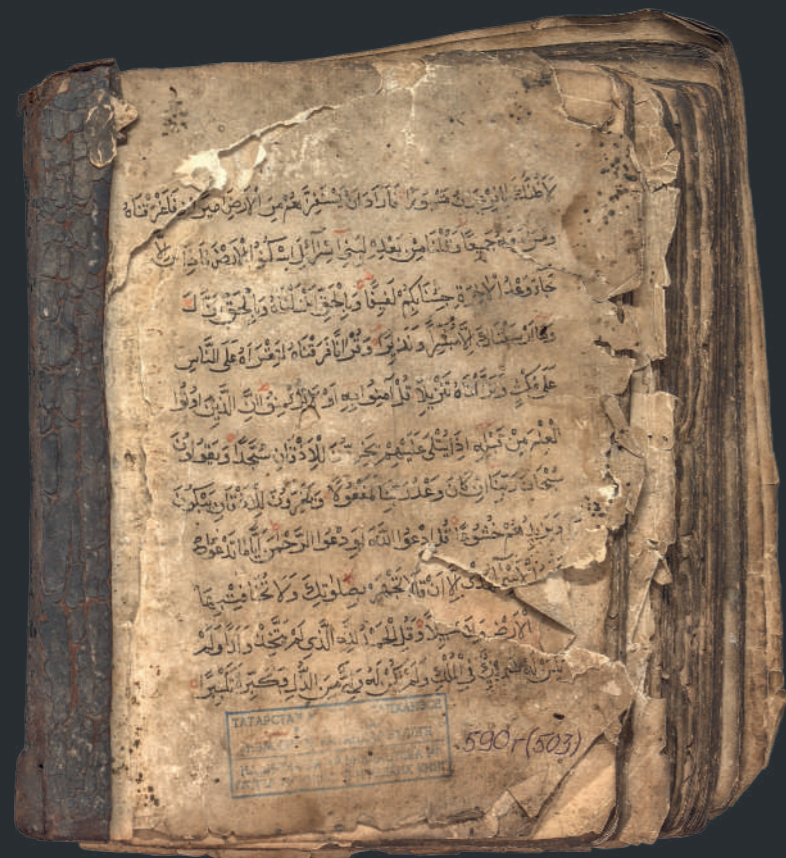 لَأَظُنُّكَ يَا فِرْعَوْنُ مَثْبُورًا فَأَرَادَ أَنْ يَسْتَفِزَّهُمْ مِنَ الْأَرْضِ
وَمَنْ مَعَهُ جَمِيعًا وَقُلْنَا مِنْ بَعْدِهِ لِبَنِي اِسْرَائِلَ اسْكُنُوا الْأَرْضَ فَاِذَا
جَاءَ وَعْدُ الْاٰخِرَةِ جِئْنَا بِكُمْ لَفِيفًا وَبِالْحَقِّ اَنْزَلْنَاهُ وَبِالْحَقِّ نَزَلَ
وَمَا اَرْسَلْنَاكَ اِلَّا مُبَشِّرًا وَنَذِيرًا وَقُرْاٰنًا فَرَقْنَاهُ لِتَقْرَاَهُ عَلَى النَّاسِ
عَلَى مُكْثٍ وَنَزَّلْنَاهُ تَنْزِيلًا قُلْ اٰمِنُوا بِهِ اَوْ لَا تُؤْمِنُوا اِنَّ الَّذِينَ اُوتُوا
الْعِلْمَ مِنْ قَبْلِهِ اِذَا يُتْلَى عَلَيْهِمْ يَخِرُّونَ لِلْاَذْقَانِ سُجَّدًا وَيَقُولُونَ
سُبْحَانَ رَبِّنَا اِنْ كَانَ وَعْدُ رَبِّنَا لَمَفْعُولًا وَيَخِرُّونَ لِلْاَذْقَانِ يَبْكُونَ
وَيَزِيدُهُمْ خُشُوعًا قُلِ ادْعُوا اللّٰهَ اَوِ ادْعُوا الرَّحْمٰنَ اَيًّامَا تَدْعُوا
وَلَا تَجْهَرْ بِصَلٰوتِكَ وَلَا تُخَافِتْ بِهَا
سَبِيلًا وَقُلِ الْحَمْدُ لِلّٰهِ الَّذِي لَمْ يَتَّخِذْ وَلَدًا وَلَمْ
يَكُنْ لَهُ شَرِيكٌ فِي الْمُلْكِ وَلَمْ يَكُنْ لَهُ وَلِيٌّ مِنَ الذُّلِّ وَكَبِّرْهُ تَكْبِيرًا
590г(503)